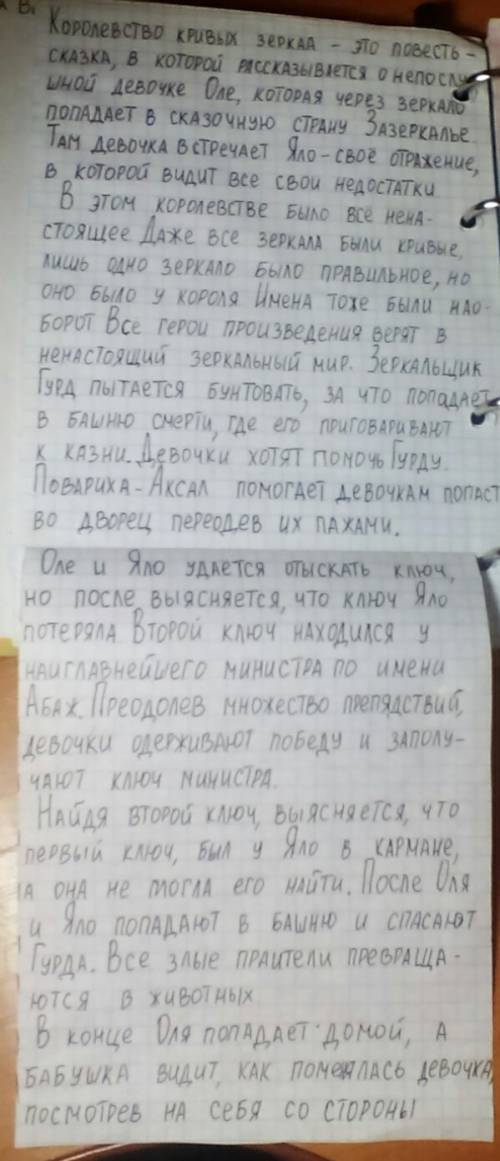 Королевство кривых зеркал – это повесть –
сказка, в которой рассказывается о непослу
шной девочке Оле, которая через зеркало
попадает в сказочную страну Зазеркалье.
Там девочка встречает Яло – своё отражение,
в которой видит все свои недостатки
В этом королевстве было всё нена-
стоящее Даже все зеркала были кривые,
лишь одно зеркало было правильное, но
оно было у короля Имена тоже были нао-
борот Все герои произведения верят в
ненастоящий зеркальный мир. Зеркальщик
Гурд пытается бунтовать, за что попадает
в башню смерти, где его приговаривают
к казни. Девочки хотят помочь Гурду.
Повариха – Аксал помогает девочкам попаст
во дворец переодев их пажами.
Оле и Яло удается отыскать ключ,
но после выясняется, что ключ Яло
потеряла Второй ключ находился у
наиглавнейшего министра по имени
Абаж. Преодолев множество препядствий,
девочки одерживают победу и заполу-
чают ключ министра.
Найдя второй ключ, выясняется, что
первый ключ, был у Яло в кармане,
а она не могла его найти. После Оля
и Яло попадают в башню и спасают
Гурда. Все злые праители превраща-
ются в животных
В конце Оля попадает домой, а
бабушка видит, как поменялась девочка,
посмотрев на себя со стороны